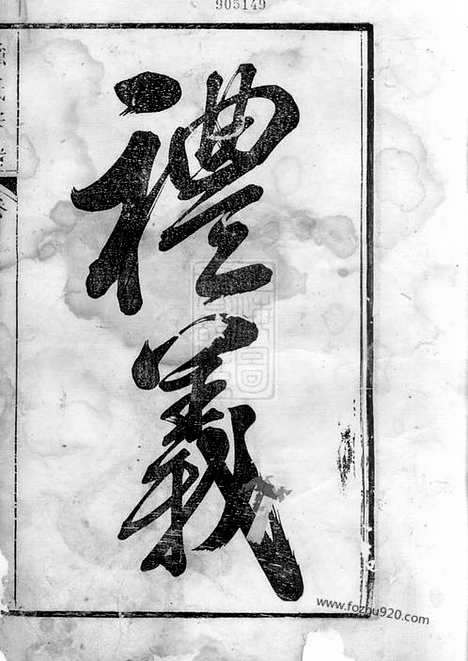 905149
禮
義
www.fozhu920.com